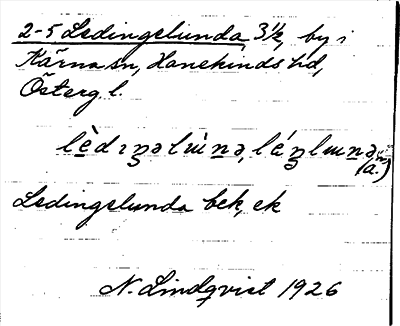 2-5 Ledingelunda, 3 1/2, by i
Kärna sn, Hanekinds hd,
Östergl.
Ledingelunda bek, ek
N. Lindqvist 1926